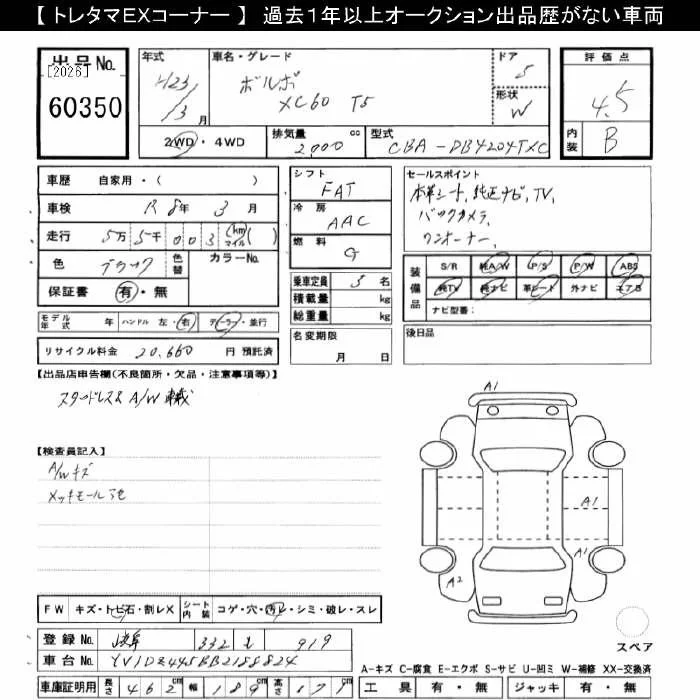 【 トレタマEXコーナー 】 過去１年以上オークション出品歴がない車両
出品No.
[2026]
60350
年式
H23/3 月
車名・グレード
ボルボ
XC60 T5
ドア
5
形状
W
評価点
4.5
内装
B
2WD・4WD
排気量 2,000 cc
型式 CBA-DB4204TXC
車歴 自家用・( )
車検 R 8年 3 月
走行 5万 5千 0 0 3 (km マイル) ( )
色 ブラック
色替
カラーNo.
保証書 有・無
シフト
FAT
冷房
AAC
燃料
G
乗車定員 5 名
積載量 kg
総重量 kg
セールスポイント
本革シート, 純正ナビ, TV,
バックカメラ,
ワンオーナー,
装備品
S/R 純A/W P/S P/W ABS
純TV 純ナビ 革シート 外ナビ エアB
ナビ型番：
モデル年式 年 ハンドル 左・右 ディーラー・並行
リサイクル料金 20,660 円 預託済
名変期限
月 日
後日品
【出品店申告欄(不良箇所・欠品・注意事項等)】
スタッドレス& A/W 車載
【検査員記入】
A/Wキズ
メッキモール
A1
A1
A1
A2
FW キズ・トビ石・割レX シート内装 コゲ・穴・汚レ・シミ・破レ・スレ
スペア
登録No. 岐阜 332 919
車台No. YV1DZ445BB2188824
A-キズ C-腐食 E-エクボ S-サビ U-凹ミ W-補修 XX-交換済
車庫証明用 長さ 462 cm 幅 189 cm 高さ 171 cm
工具 有・無 ジャッキ 有・無